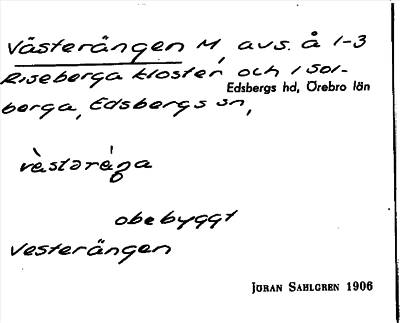 Västerängen M, avs. å 1-3
Riseberga kloster och 1 Sol-
Edsbergs hd, Örebro län
berga, Edsbergs sn,
obebyggt
Vesterängen
JÖRAN SAHLGREN 1906